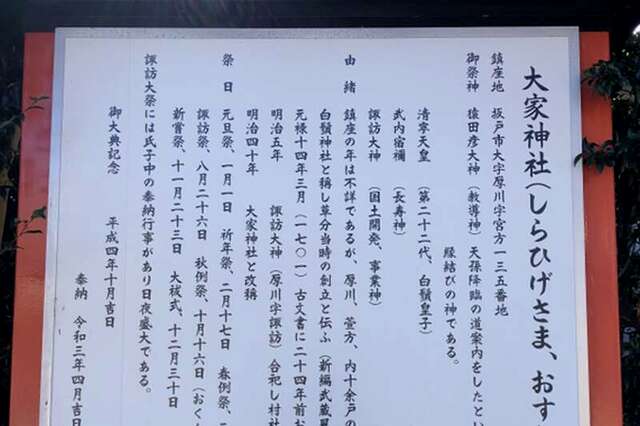 大家神社(しらひげさま、おす
鎮座地 坂戸市大字厚川字宮方一三五番地
御祭神 猿田彦大神 (教導神) 天孫降臨の道案内をしたとい
縁結びの神である。
清寧天皇 (第二十二代、白鬚皇子)
武内宿禰 (長寿神)
諏訪大神 (国土開発、事業神)
由緒 鎮座の年は不詳であるが、厚川、萱方、内十余戸の
白鬚神社と称し草分当時の創立と伝ふ(新編武蔵風
元禄十四年三月(一七〇一)古文書に二十四年前お
明治五年 諏訪大神(厚川字諏訪)合祀し村社
明治四十年 大家神社と改称
祭日 元旦祭、一月一日 祈年祭、二月十七日 春例祭、二
諏訪祭、八月二十六日 秋例祭、十月十六日(おく
新嘗祭、十一月二十三日 大祓式、十二月三十日
諏訪大祭には氏子中の奉納行事があり日夜盛大である。
御大典記念 平成四年十月吉日
奉納 令和三年四月吉日